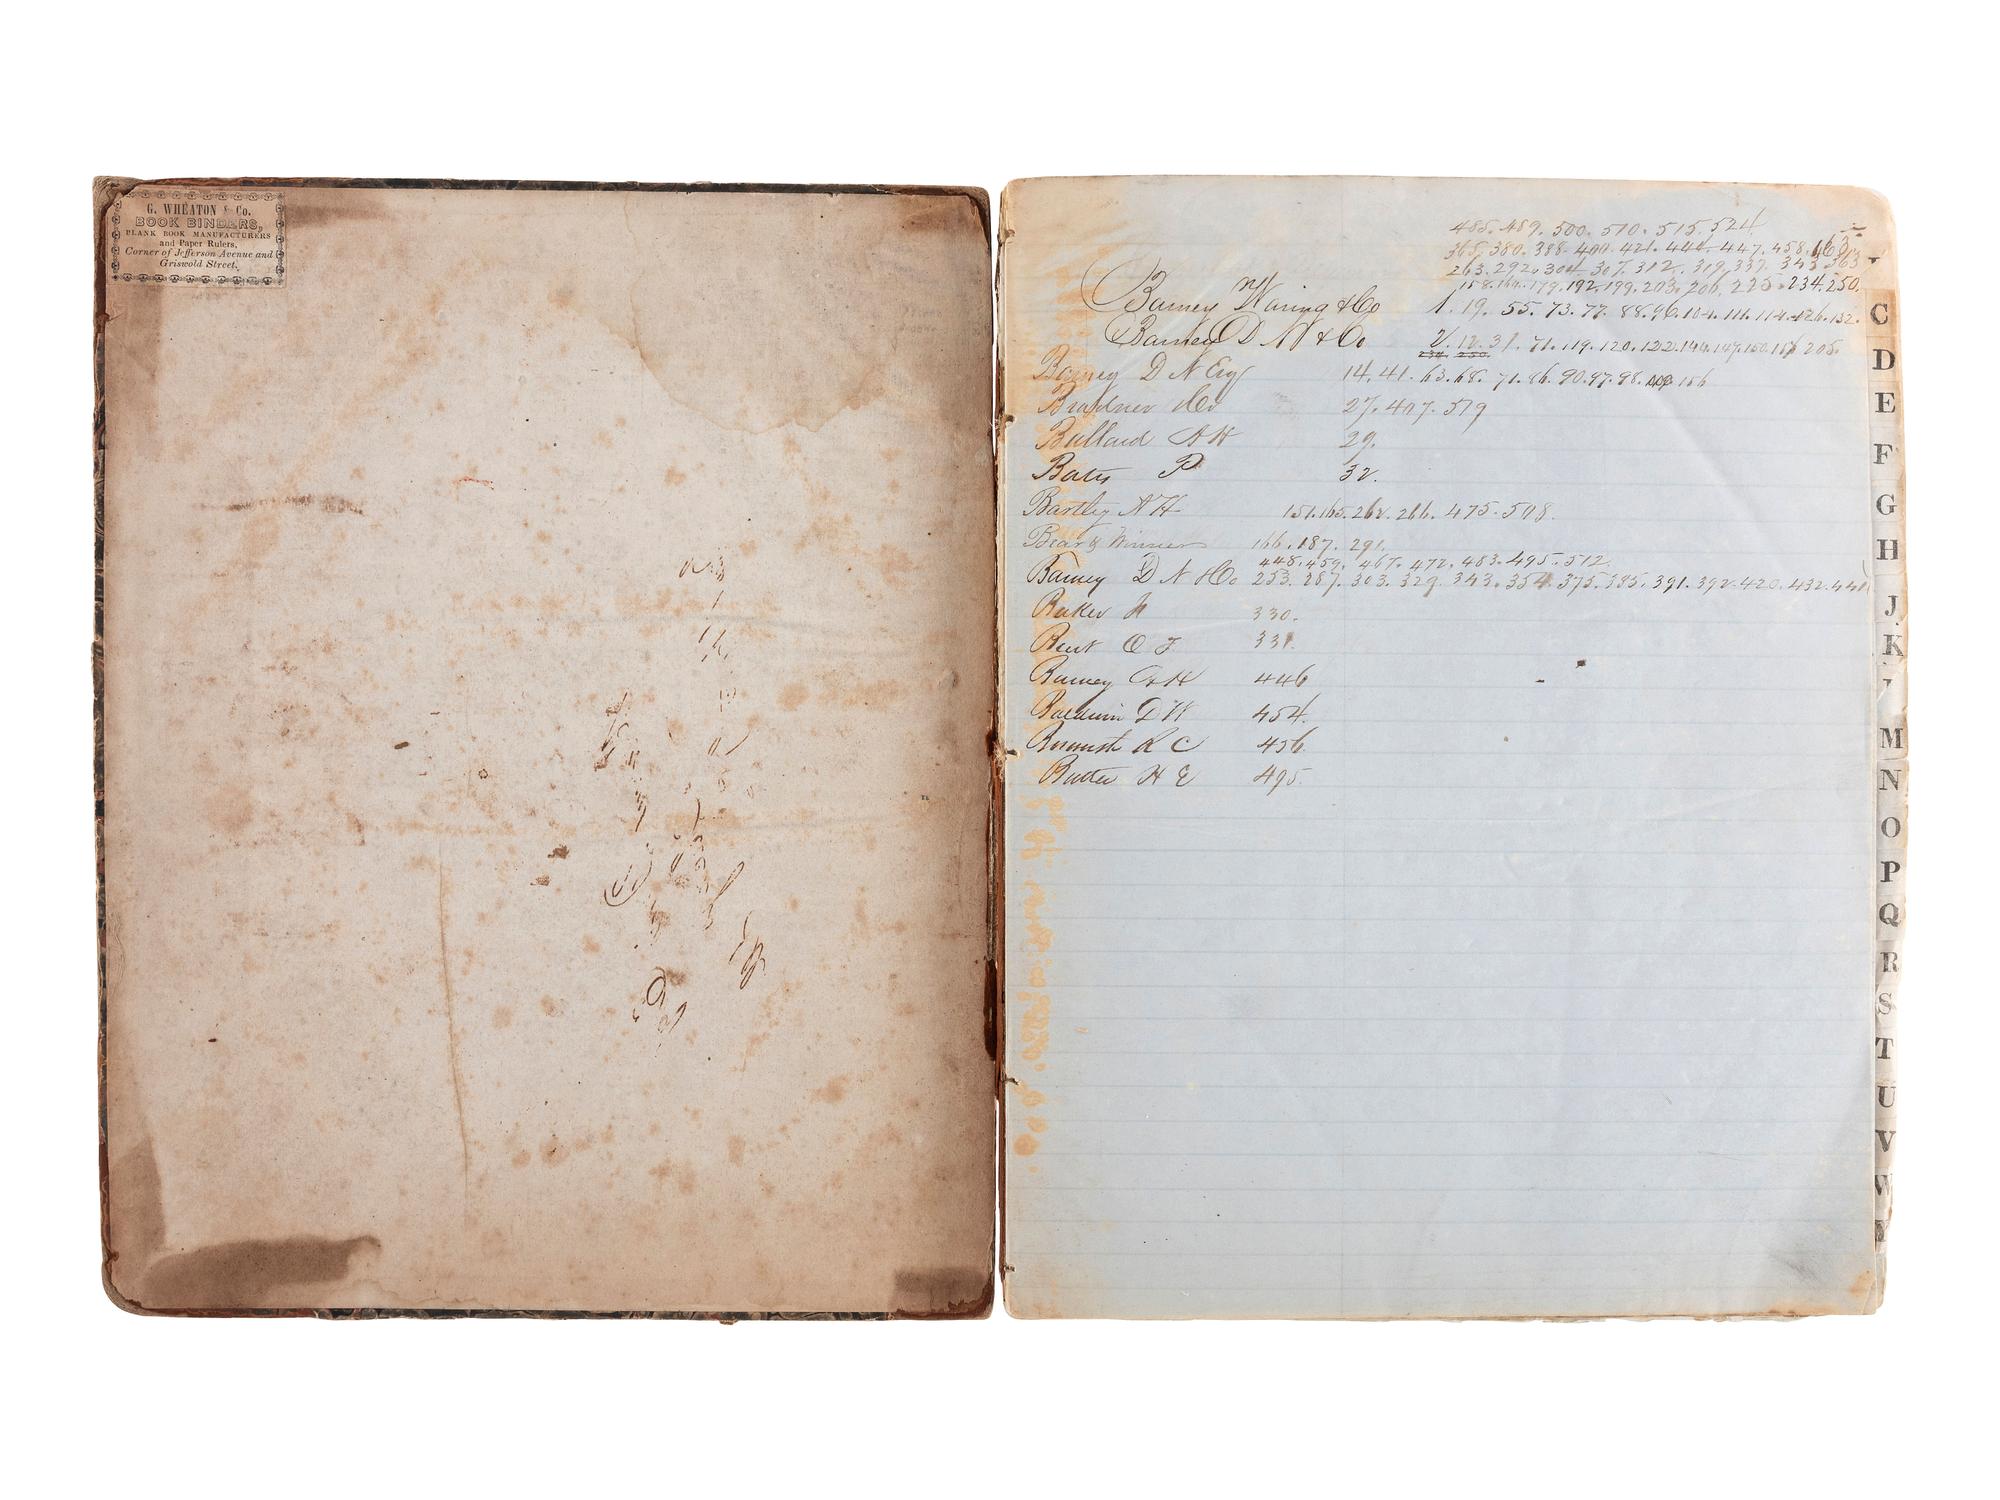 G. WHEATON & Co.
BOOK BINDERS,
BLANK BOOK MANUFACTURERS
and Paper Rulers,
Corner of Jefferson Avenue and
Griswold Street.
485. 489. 500. 510. 515. 524
365. 380. 388. 400. 421. 444. 447. 458. 463.
263. 292. 304. 307. 312. 319. 337. 343 363
158. 164. 179. 192. 199. 203. 206. 225. 234. 250.
Barney Waring & Co 1. 19. 55. 73. 77. 88. 96. 104. 111. 114. 126. 132.
Barney D N & Co 2. 12. 31. 71. 119. 120. 122. 144. 149. 150. 156 205.
234. 250.
Barney D N Esq 14. 41. 63. 68. 71. 86. 90. 97. 98. 156
Bradner & Co 27. 407. 579
Bullard A H 29.
Bates P 32.
Bartley A H 151. 165. 262. 266. 475. 508.
Bear & Winners 166. 187. 291.
448. 459. 467. 472. 483. 495. 512.
Barney D N & Co 253. 287. 303. 329. 343. 354. 375. 385. 391. 392. 420. 432. 441
Baker H 330.
Bent O F 331.
Barney A H 446
Baldwin D W 454.
R C 456.
Butler H E 495.
C
D
E
F
G
H
J
K
M
N
O
P
Q
R
S
T
U
V
W
Y